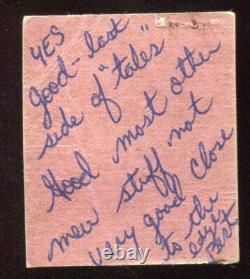 YES
good-last
side of "tales"
Good most other
new stuff not
very good close
to the
edge